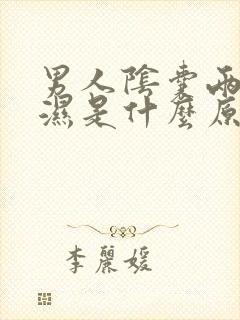 男人陰囊兩
濕是什麼原
李麗媛